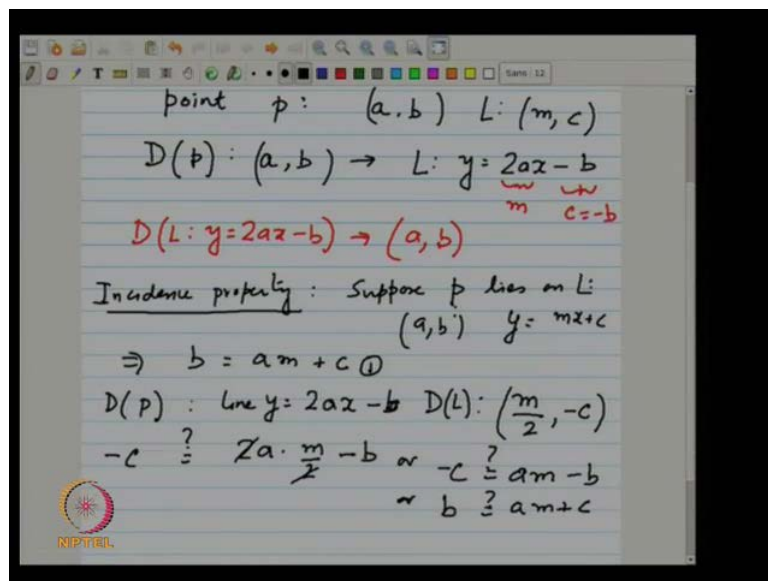 T Sans 12
point p : (a, b) L: (m, c)
D(p) : (a, b) → L: y = 2ax - b
m c=-b
D(L: y=2ax-b) → (a, b)
Incidence property : Suppose p lies on L:
(a,b) y= mx+c
⇒ b = am + c ①
D(p) : line y= 2ax -b D(L): (m/2, -c)
-c ?= 2a · m/2 - b or -c ?= am - b
or b ?= am+c
NPTEL